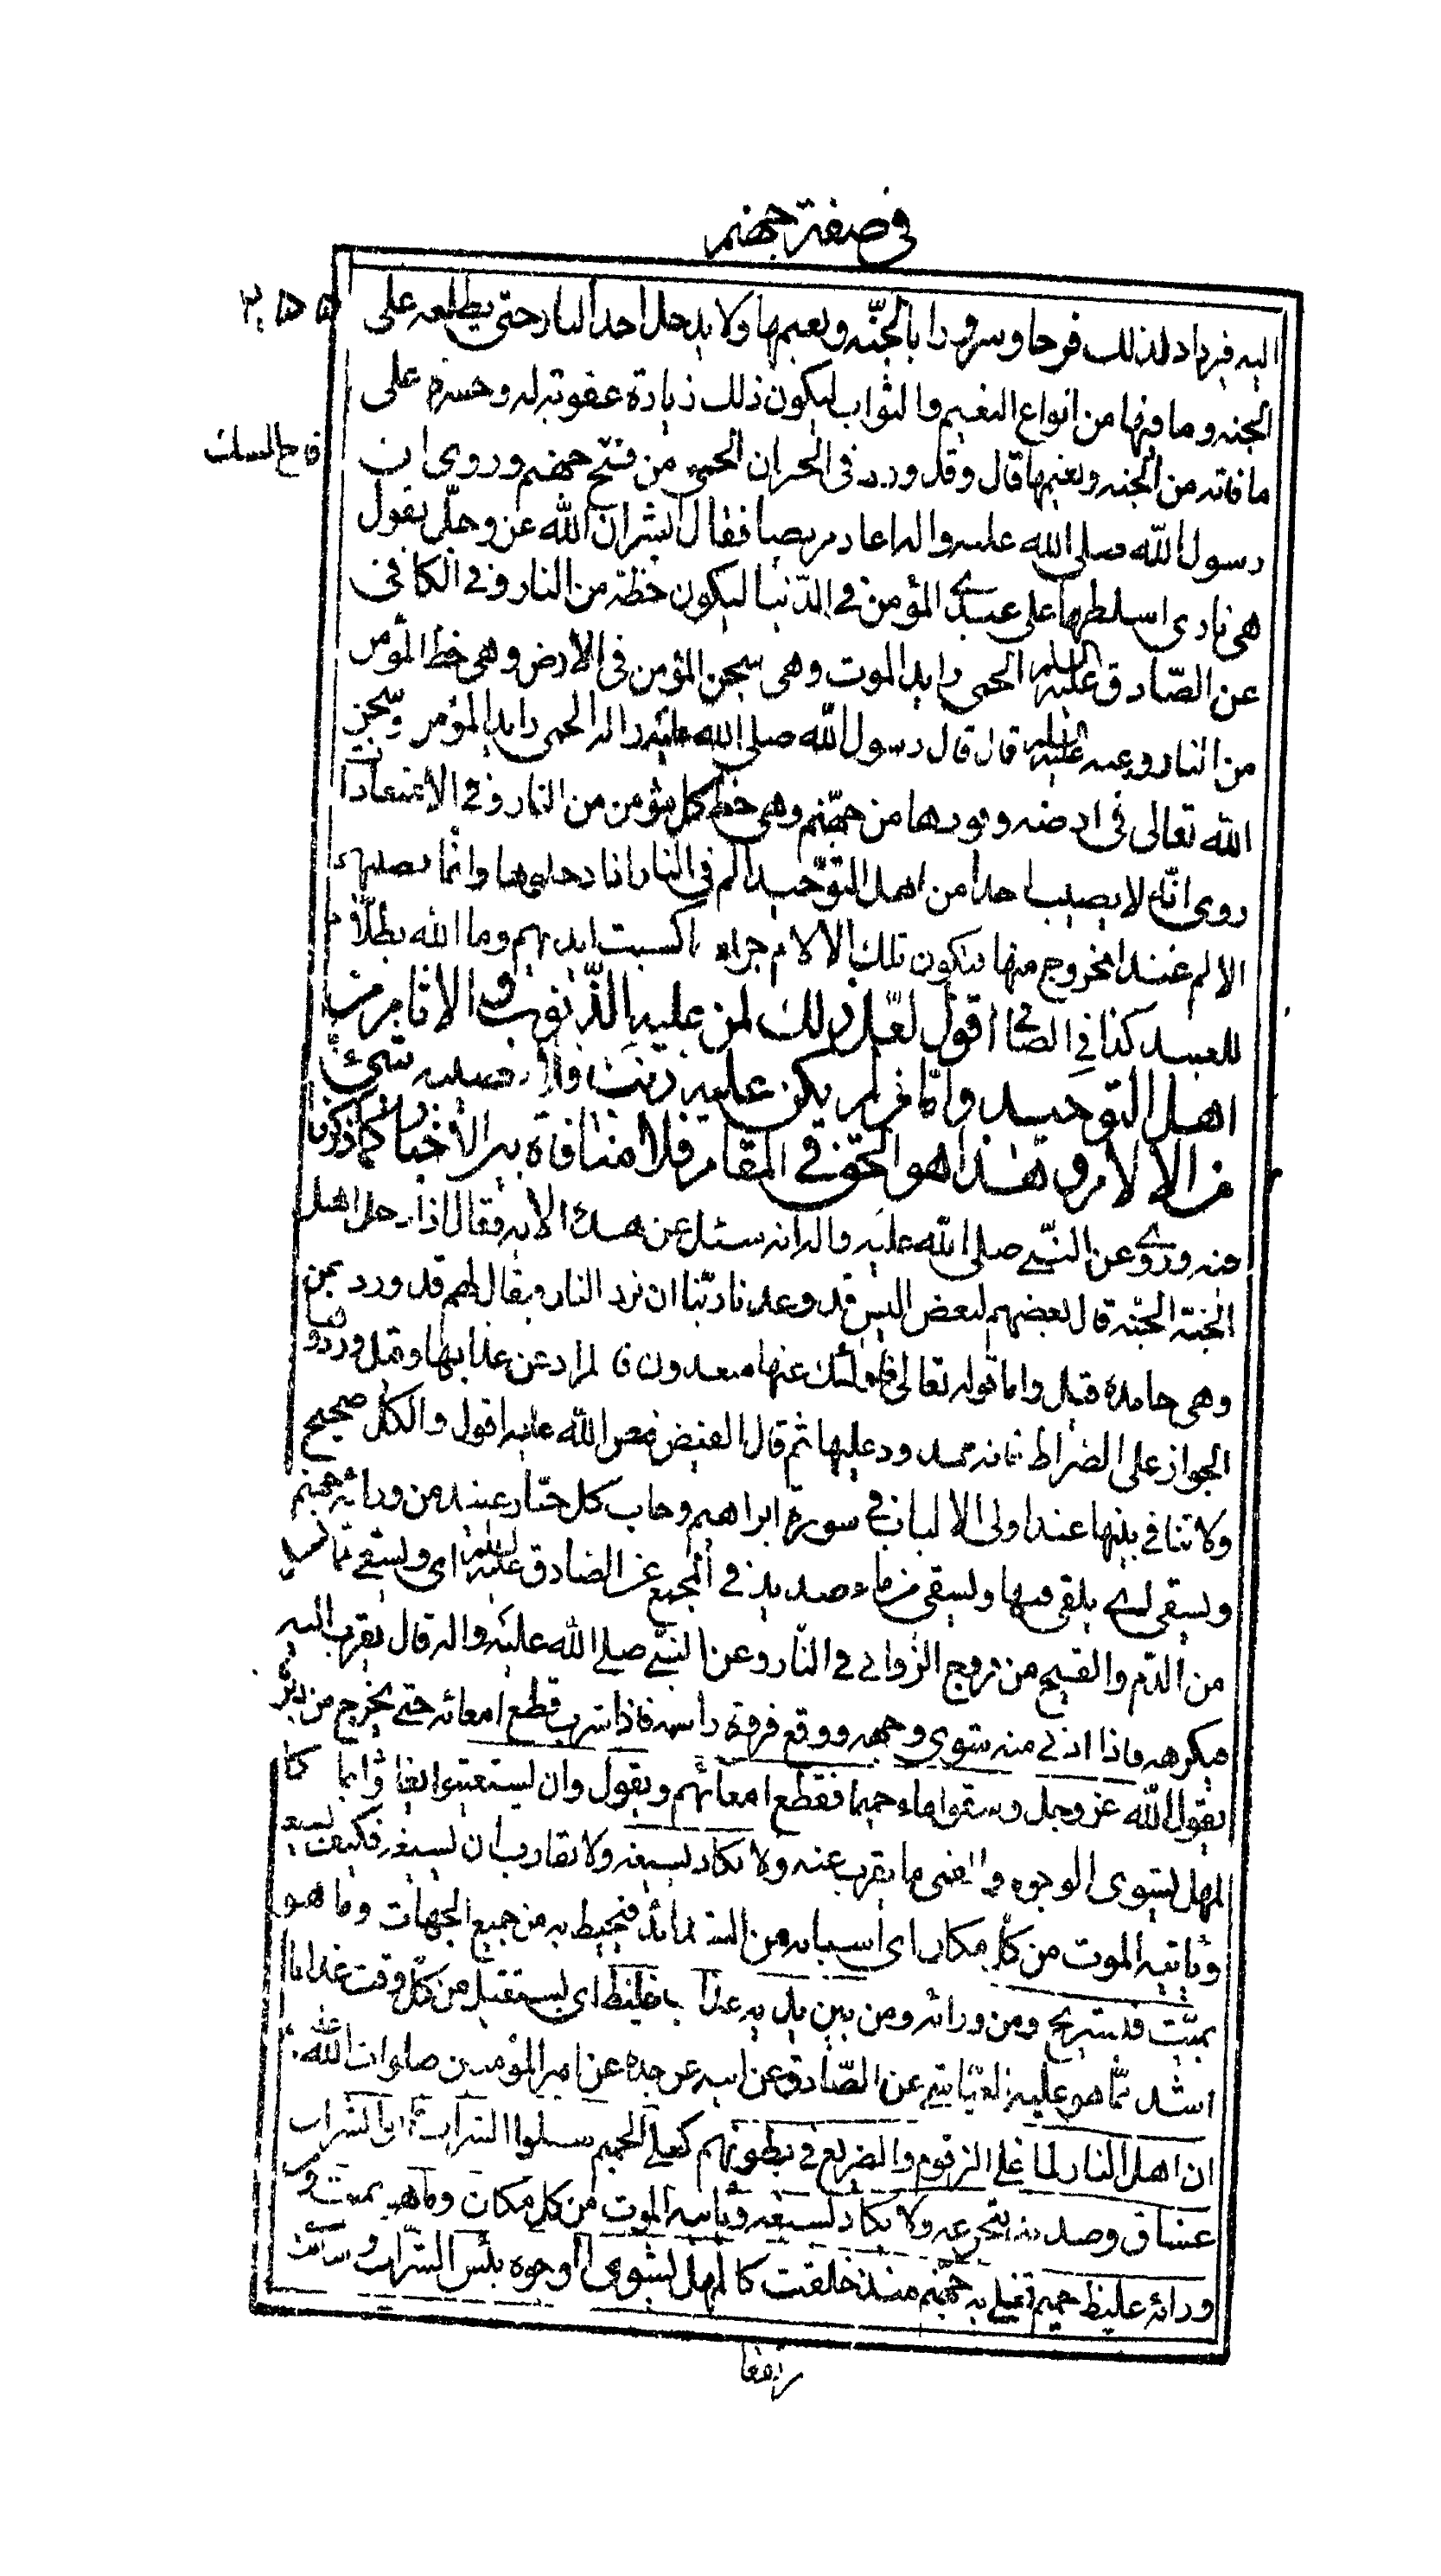 في صفة جهنم
٢٥٥
اليه فيزداد لذلك فرحا وسرورا بالجنّه ونعيمها ولا يدخل احد النار حتى يطلعه على
الجنه وما فيها من انواع النعيم والثواب ليكون ذلك زيادة عقوبة له وحسرة على
ما فاته من الجنه ونعيمها قال وقد ورد في الخبر ان الحمى من فيح جهنم وروى ان
رسول الله صلى الله عليه واله عاد مريضا فقال ابشر ان الله عز وجلّ يقول
هي ناري اسلطها على عبدي المؤمن في الدّنيا ليكون حظه من النار وفي الكافي
عن الصّادق عليه السلم الحمى رايد الموت وهي سجن المؤمن في الارض وهي حظ المؤمن
من النار وعنه عليه السلم قال قال رسول الله صلى الله عليه واله الحمى رايد الموت وسجن
الله تعالى في ارضه وفورها من جهنّم وهي حظ كل مؤمن من النار وفي الاعتقادات
روى انّه لا يصيب احدا من اهل التوّحيد الم في النار اذا دخلوها وانما يصيبهم
الالم عند الخروج منها فتكون تلك الالام جزاء بما كسبت ايديهم وما الله بظلّام
للعبيد كذا في الصافي اقول لعّل ذلك لمن عليه الذّنوب والاثام من
اهل التوحيد وامّا من لم يكن عليه ذنب فلا يصيبه شيئ
من الالام وهذا هو الحق في المقام فلا منافاة بين الأخبار كما ذكرنا
منه وروي عن النبّي صلى الله عليه واله انه سئل عن هذه الاية فقال اذا دخل اهل
الجنّة الجنّه قال بعضهم لبعض اليس قد وعدنا ربّنا ان نرد النار ويقال لهم قد وردتمون
وهي خامدة قيل واما قوله تعالى فاولئك عنها مبعدون فالمراد عن عذابها وقيل ورودها
الجواز على الصّراط فانه ممدود عليها ثم قال الفيض رحمه الله عليه اقول والكل صحيح
ولا تنافي بينها عند اولى الالباب في سورة ابراهيم وخاب كل جبّار عنيد من ورائه جهنم
ويسقى اي يلقى فيها ويسقى من ماء صديد في المجمع عن الصّادق عليه السلم اي ويسقى ممّا يسيل
من الدّم والقيح من فروج الزّواني في النّار وعن النبّي صلى الله عليه واله قال يقرب اليه
فيكرهه فاذا ادني منه شوى وجهه ووقع فروة راسه فاذا شرب قطع امعائه حتى يخرج من دبره
يقول الله عز وجل وسقوا ماء حميما فقطع امعائهم ويقول وان يستغيثوا يغاثوا بماء كا
لمهل يشوى الوجوه ولا يكاد يسيغه ولا يقارب ان يسيغه فكيف يسيغه
وياتيه الموت من كل مكان اى اسبابه من الشدائد فتحيط به من جميع الجهات وما هو
بميّت فيستريح ومن ورائه ومن بين يديه عذاب غليظ اى يستقبل من كلّ وقت عذابا
اشد ممّا هو عليه العيّاشي عن الصّادق عن ابيه عن جده عن امير المؤمنين صلوات الله عليه
ان اهل النار لما غلى الزقوم والضريع في بطونهم كغلي الحميم سئلوا الشراب فاتوا بشراب
غساق وصديد يتجرعه ولا يكاد يسيغه وياتيه الموت من كل مكان وما هو بميت ومن
ورائه عذاب غليظ حميم تغلي به جهنّم منذ خلقت كالمهل يشوى الوجوه بئس الشّراب وسائت
مرتفقا